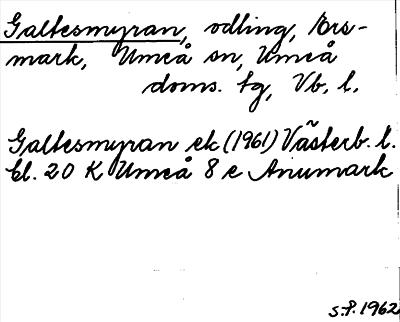 Galtesmyran, odling, Ers-
mark, Umeå sn, Umeå
doms. tg, Vb. l.
Galtesmyran ek (1961) Västerb. l.
bl. 20 K Umeå 8 e Anumark
S.P. 1962